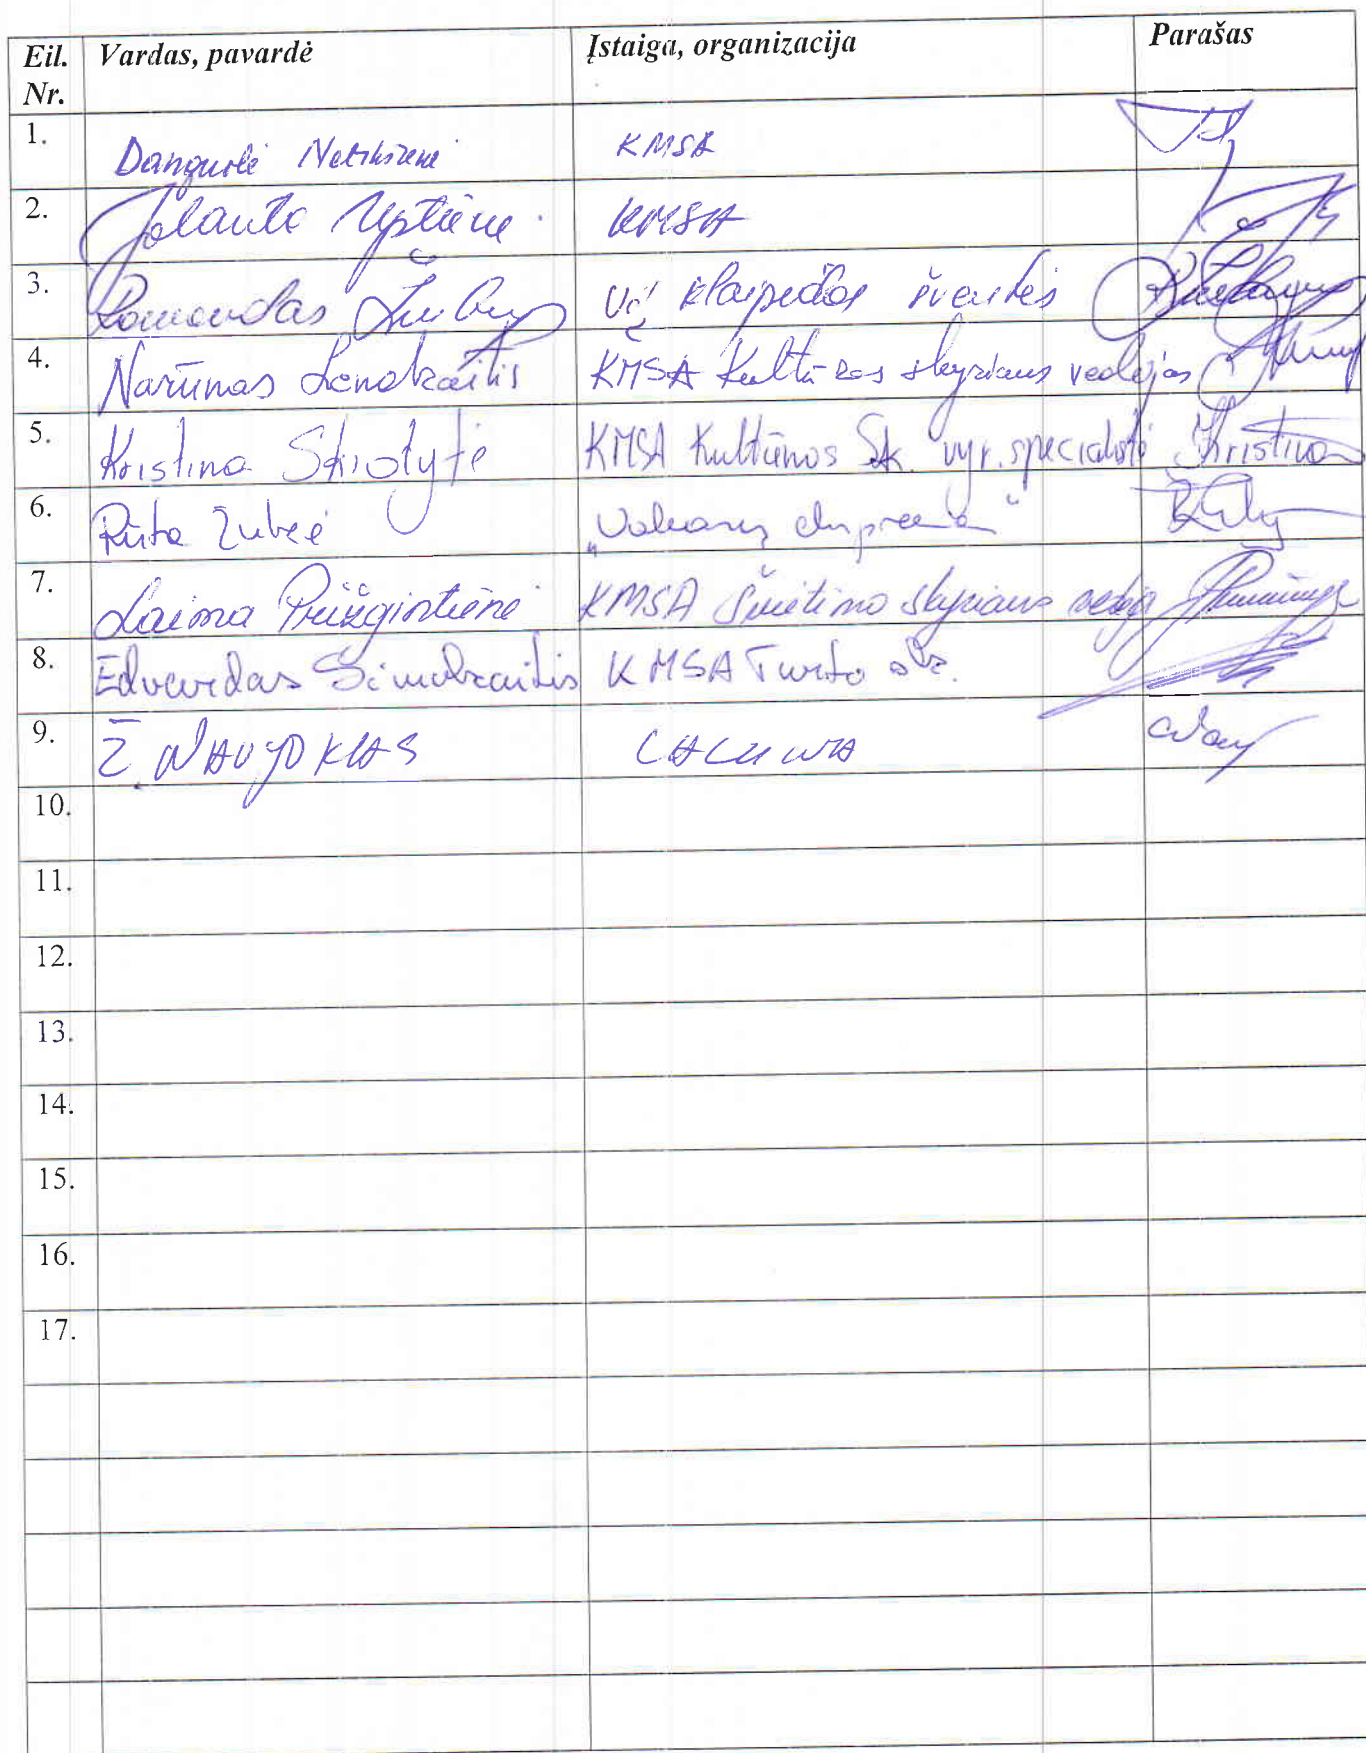 Eil. Nr. Vardas, pavardė Įstaiga, organizacija Parašas
1. Dangutė KMSA
2. Jolanta Uptienė KMSA
3. Romandas VšĮ Klaipėdos šventės
4. Narūnas Lendraitis KMSA Kultūros skyriaus vedėjas
5. Kristina Skiotytė KMSA Kultūros Sk. vyr. specialistė Kristina
6. Rūta „Vakarų ekspresas"
7. Laima Prižgintienė KMSA Švietimo skyriaus vedėja
8. Edvardas Simokaitis KMSA Turto sk.
9. Z. NAUJOKAS
10.
11.
12.
13.
14.
15.
16.
17.